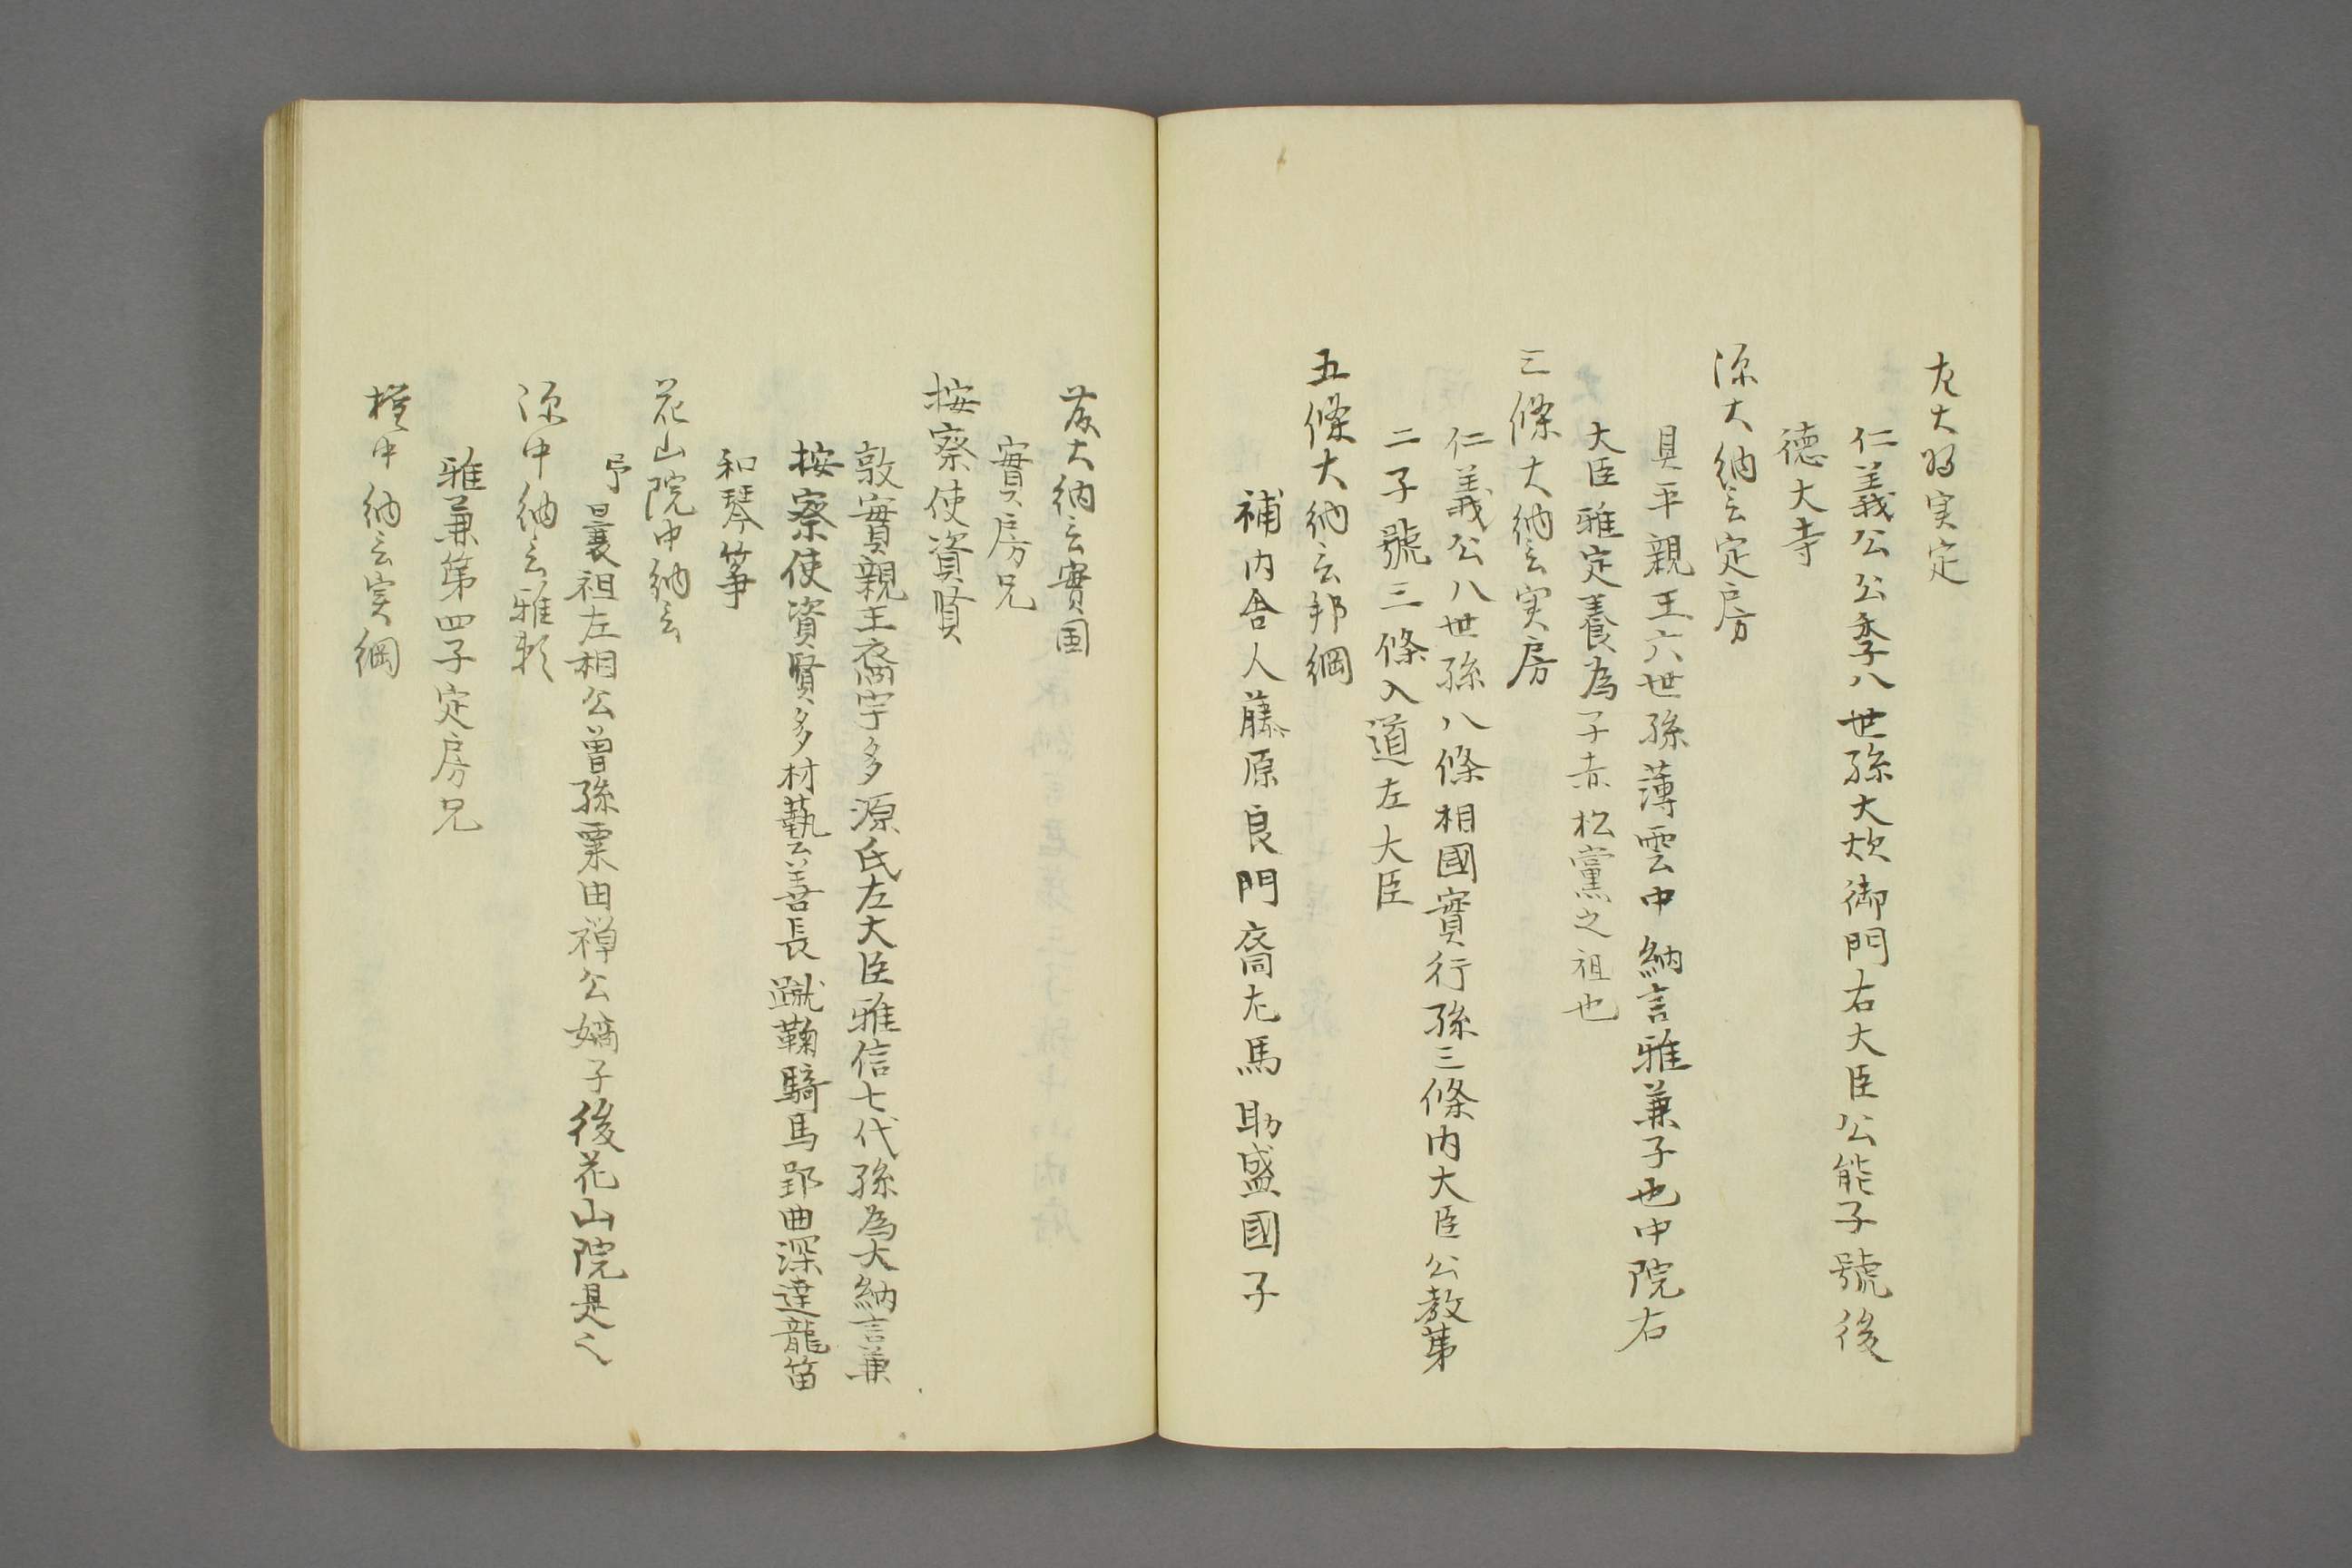 左大将実定
仁義公公季八世孫大炊御門右大臣公能子號後
德大寺
源大納言定房
具平親王六世孫薄雲中納言雅兼子也中院右
大臣雅定養為子赤松黨之祖也
三條大納言実房
仁義公八世孫八條相國實行孫三條内大臣公教第
二子號三條入道左大臣
五條大納言邦綱
補内舎人藤原良門裔左馬助盛國子
藤大納言實国
實房兄
按察使資賢
敦實親王裔宇多源氏左大臣雅信七代孫為大納言兼
按察使資賢多材藝云善長蹴鞠騎馬郢曲深達龍笛
和琴箏
花山院中納言
予曩祖左相公曽孫粟田禅公嫡子後花山院是之
源中納言雅頼
雅兼第四子定房兄
権中納言実綱